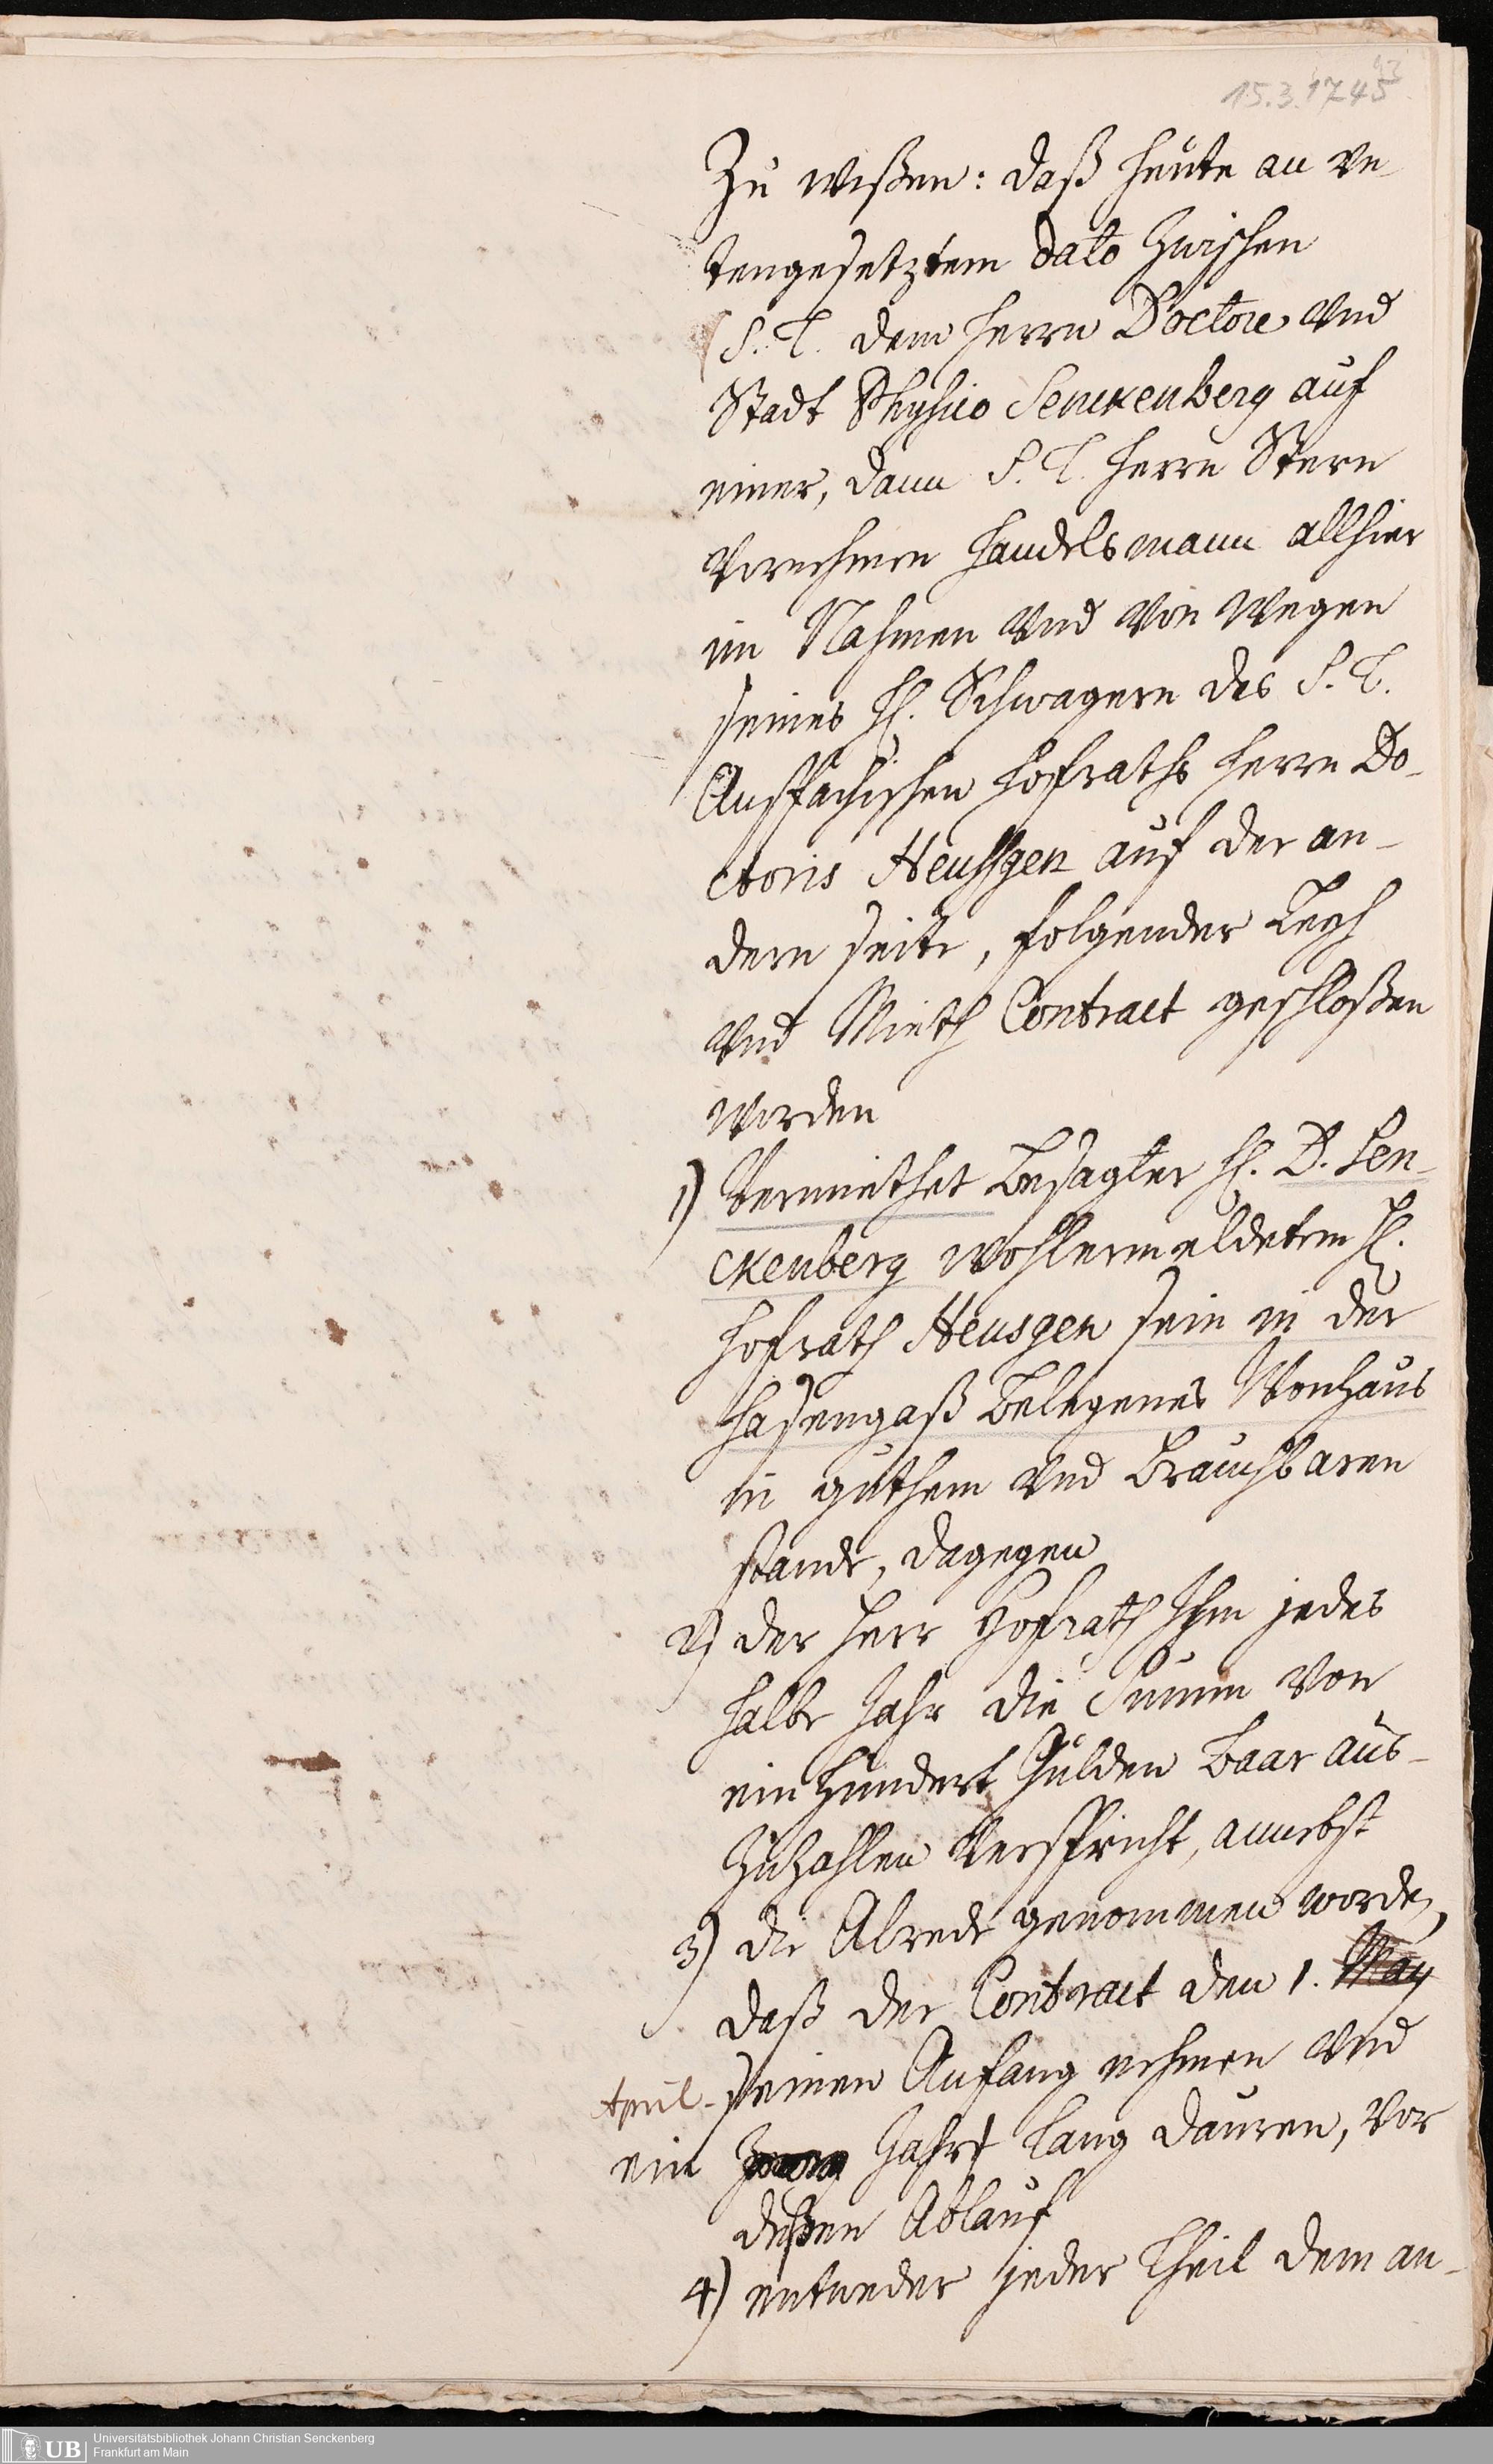 43
15.3.1745
Zu wißen: daß heute an un-
tengesetztem dato zwischen
S. T. dem Herrn Doctore und
Stadt Physico Senckenberg auf
einer, dann S. T. Herrn Stern
vornehmen Handelsmann allhier
im Nahmen und von wegen
seines H. Schwagern des S. T.
Anspachischen Hofraths Herrn Do-
ctoris Heussgen auf der an-
dern seite, folgender Leyh
und Mieth Contract geschloßen
worden
1) Vermiethet besagter H. D. Sen-
ckenberg wohlermeldetem H.
Hofrath Heusgen sein in der
Hasengaß belegenes Wonhaus
in guthem und brauchbaren
stande, dagegen
2) der Herr Hofrath Ihm jedes
halbe Jahr die Summ von
ein Hundert Gulden baar aus-
zuzahlen verspricht, annebst
3) die Abrede genommen worden,
daß der Contract den 1. May
April. seinen Anfang nehmen und
ein Jahr lang dauren, vor
deßen Ablauf
4) entweder jeder Theil dem an-
UB
Universitätsbibliothek Johann Christian Senckenberg
Frankfurt am Main